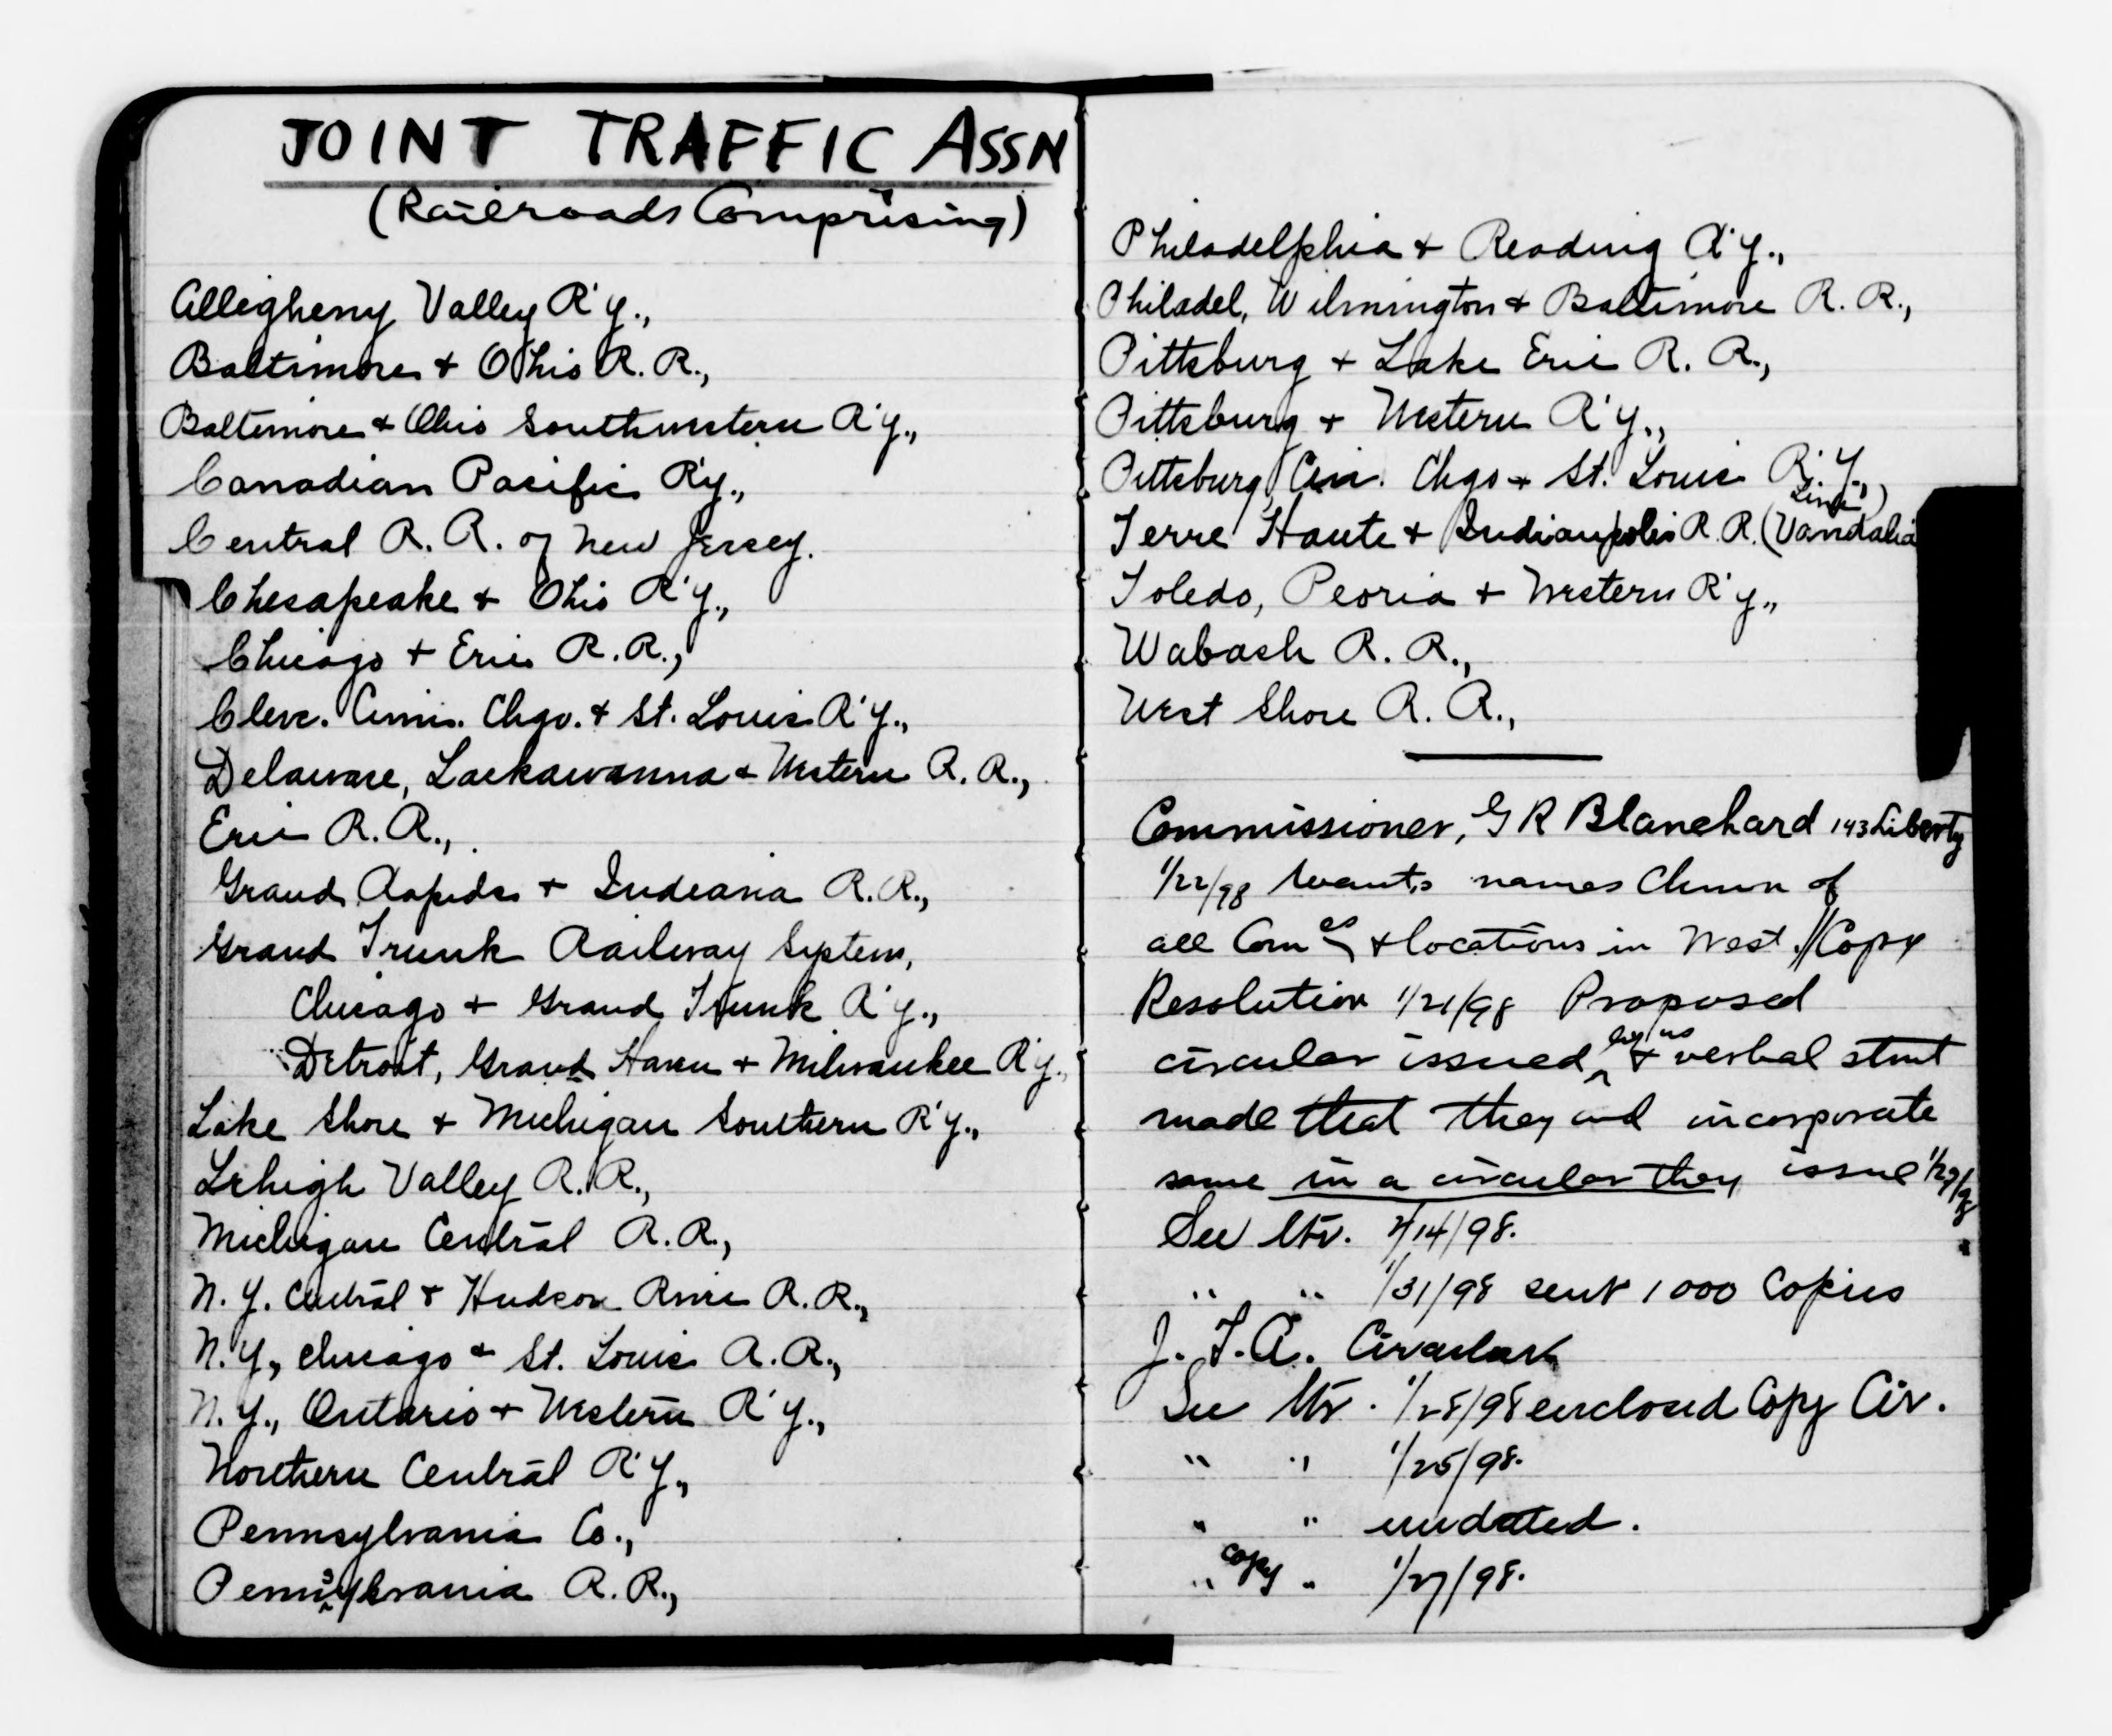 JOINT TRAFFIC ASSN
(Railroads Comprising)
Allegheny Valley R'y.,
Baltimore + Ohio R. R.,
Baltimore + Ohio Southwestern R'y.,
Canadian Pacific R'y.,
Central R. R. of New Jersey.
Chesapeake + Ohio R'y.,
Chicago + Erie R. R.,
Cleve. Cinn. Chgo. + St. Louis R'y.,
Delaware, Lackawanna + Western R. R.,
Erie R. R.,
Grand Rapids + Indiana R. R.,
Grand Trunk Railway System,
Chicago + Grand Trunk R'y.,
Detroit, Grand Haven + Milwaukee R'y.,
Lake Shore + Michigan Southern R'y.,
Lehigh Valley R. R.,
Michigan Central R. R.,
N. Y. Central + Hudson River R. R.,
N. Y., Chicago + St. Louis R. R.,
N. Y., Ontario + Western R'y.,
Northern Central R'y.,
Pennsylvania Co.,
Pennsylvania R. R.,
Philadelphia + Reading R'y.,
Philadel, Wilmington + Baltimore R. R.,
Pittsburg + Lake Erie R. R.,
Pittsburg + Western R'y.,
Pittsburg, Cin. Chgo + St. Louis R'y.,
Terre Haute + Indianapolis R. R. (Vandalia Line)
Toledo, Peoria + Western R'y.,
Wabash R. R.,
West Shore R. R.,
Commissioner, G R Blanchard 143 Liberty
1/22/98 wants names Chmn of
all Com es + locations in West // Copy
Resolution 1/21/98 Proposed
circular issued by us + verbal stmt
made that they wd incorporate
same in a circular they issue 1/27/98
See ltr. 2/14/98.
" " 1/31/98 sent 1000 Copies
J. T. A. Circulars
See ltr. 1/28/98 enclosed Copy Cir.
" " 1/25/98.
" " undated.
" copy " 1/27/98.